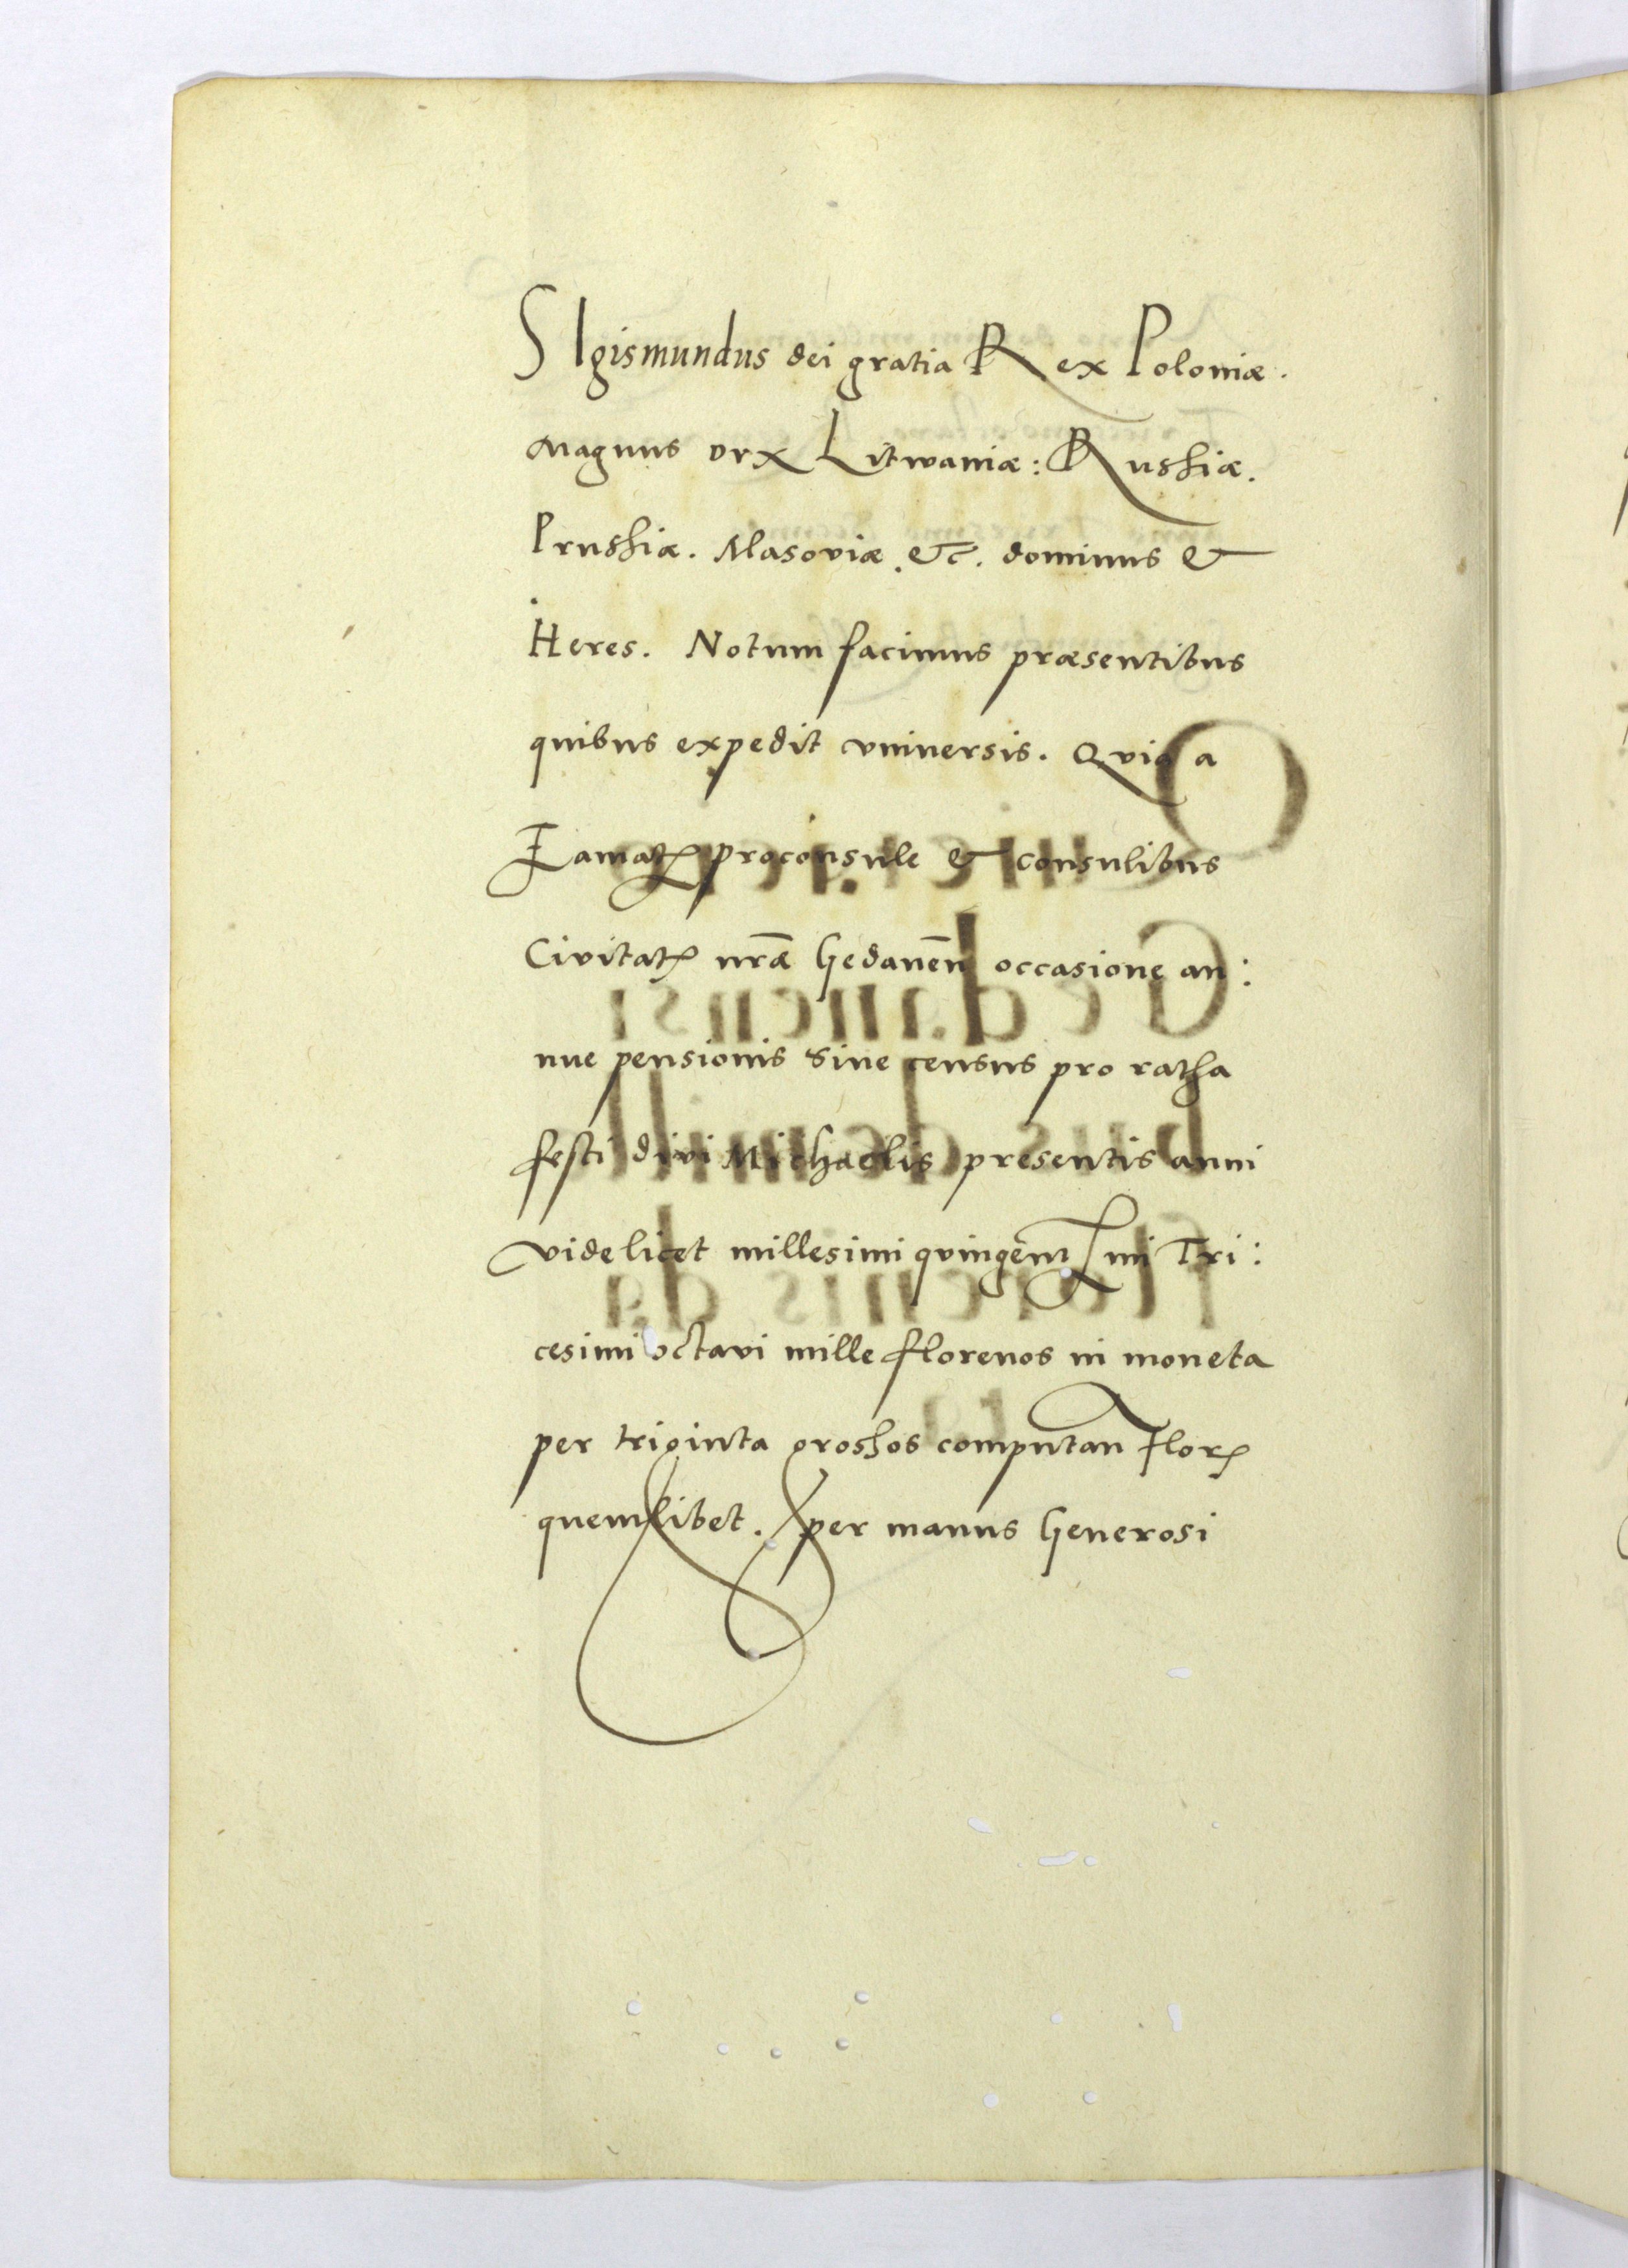 SIgismundus dei gratia Rex Poloniæ.
Magnus Dux Litwaniæ: Russiæ.
Prussiæ. Masoviæ. &c. dominus &
Heres. Notum facimus præsentibus
quibus expedit vniuersis. Qvia a
Famatꝭ proconsule & consulibus
Civitatꝭ nr̄æ Gedaneñ occasione an:
nue pensionis siue census pro ratha
festi divi Michaelis presentis anni
videlicet millesimi qvingentesimi Tri:
cesimi octavi mille florenos in moneta
per triginta grossos computan Florꝭ
quemlibet. per manus Generosi